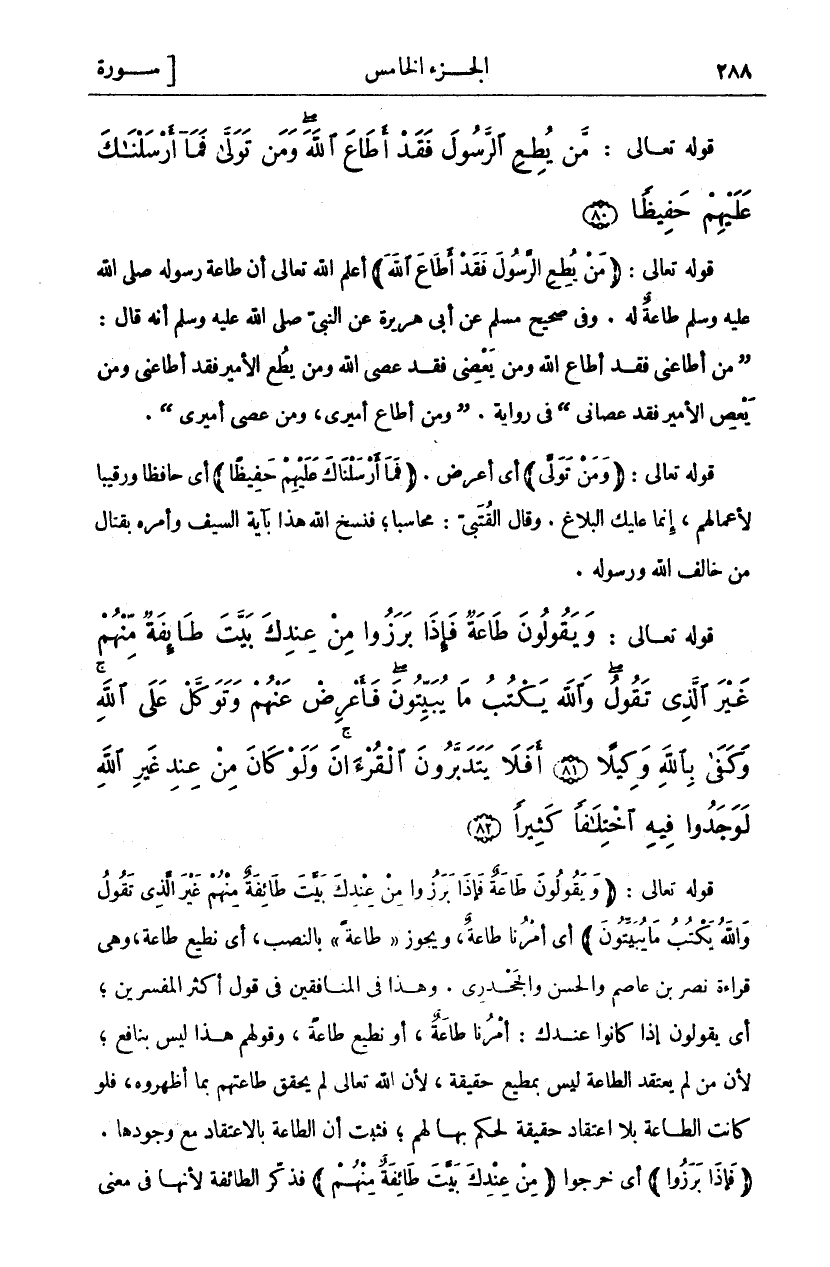 ٢٨٨ الجـــزء الخامس [ ســـورة
قوله تعـالى : مَّن يُطِعِ ٱلرَّسُولَ فَقَدْ أَطَاعَ ٱللَّهَۖ وَمَن تَوَلَّىٰ فَمَآ أَرْسَلْنَـٰكَ
عَلَيْهِمْ حَفِيظًا ﴿٨٠﴾
قوله تعالى : ﴿مَنْ يُطِعِ الرَّسُولَ فَقَدْ أَطَاعَ ٱللَّهَ﴾ أعلم الله تعالى أن طاعة رسوله صلى الله
عليه وسلم طاعةٌ له . وفى صحيح مسلم عن أبى هريرة عن النبىّ صلى الله عليه وسلم أنه قال :
” من أطاعنى فقـد أطاع الله ومن يَعْصِنى فقـد عصى الله ومن يطُع الأمير فقد أطاعنى ومن
يَعْصِ الأمير فقد عصانى “ فى رواية . ” ومن أطاع أميرى، ومن عصى أميرى “ .
قوله تعالى : ﴿وَمَنْ تَوَلَّى﴾ أى أعرض . ﴿فَمَا أَرْسَلْنَاكَ عَلَيْهِمْ حَفِيظًا﴾ أى حافظا ورقيبا
لأعمالهم ، إنما عليك البلاغ . وقال القُتَبىّ : محاسبا؛ فنسخ الله هذا بآية السيف وأمره بقتال
من خالف الله ورسوله .
قوله تعـالى : وَيَقُولُونَ طَاعَةٌ فَإِذَا بَرَزُوا مِنْ عِندِكَ بَيَّتَ طَآئِفَةٌ مِّنْهُمْ
غَيْرَ ٱلَّذِى تَقُولُۖ وَٱللَّهُ يَكْتُبُ مَا يُبَيِّتُونَۖ فَأَعْرِضْ عَنْهُمْ وَتَوَكَّلْ عَلَى ٱللَّهِۚ
وَكَفَىٰ بِٱللَّهِ وَكِيلًا ﴿٨١﴾ أَفَلَا يَتَدَبَّرُونَ ٱلْقُرْءَانَۚ وَلَوْ كَانَ مِنْ عِندِ غَيْرِ ٱللَّهِ
لَوَجَدُوا فِيهِ ٱخْتِلَـٰفًا كَثِيرًا ﴿٨٢﴾
قوله تعالى : ﴿وَيَقُولُونَ طَاعَةٌ فَإِذَا بَرَزُوا مِنْ عِنْدِكَ بَيَّتَ طَائِفَةٌ مِنْهُمْ غَيْرَ الَّذِى تَقُولُ
وَاللَّهُ يَكْتُبُ مَا يُبَيِّتُونَ﴾ أى أمْرُنا طاعةٌ، ويجوز « طاعةً» بالنصب، أى نطيع طاعة، وهى
قراءة نصر بن عاصم والحسن والجَحْدرى . وهـذا فى المنـافقين فى قول أكثر المفسرين ؛
أى يقولون إذا كانوا عنـدك : أمْرُنا طاعَةٌ ، أو نطيع طاعةً ، وقولهم هـذا ليس بنافع ؛
لأن من لم يعتقد الطاعة ليس بمطيع حقيقة ، لأن الله تعالى لم يحقق طاعتهم بما أظهروه، فلو
كانت الطـاعة بلا اعتقاد حقيقة لحكم بهـا لهم ؛ فثبت أن الطاعة بالاعتقاد مع وجودها .
﴿فَإِذَا بَرَزُوا﴾ أى خرجوا ﴿مِنْ عِنْدِكَ بَيَّتَ طَائِفَةٌ مِنْهُـمْ﴾ فذكّر الطائفة لأنهـا فى معنى